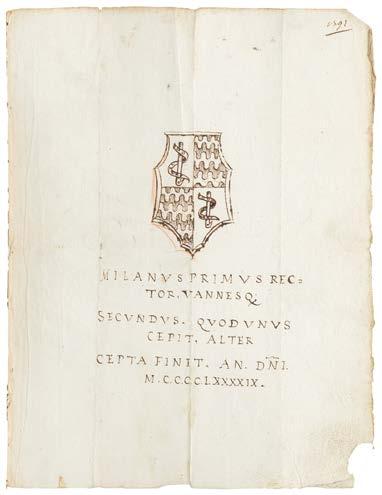 1591
MILANUS PRIMUS REC=
TOR, VANNESQ;
SECUNDUS. QUOD UNUS
CEPIT, ALTER
CEPTA FINIT. AN. DÑI.
M.CCCCLXXXXIX.